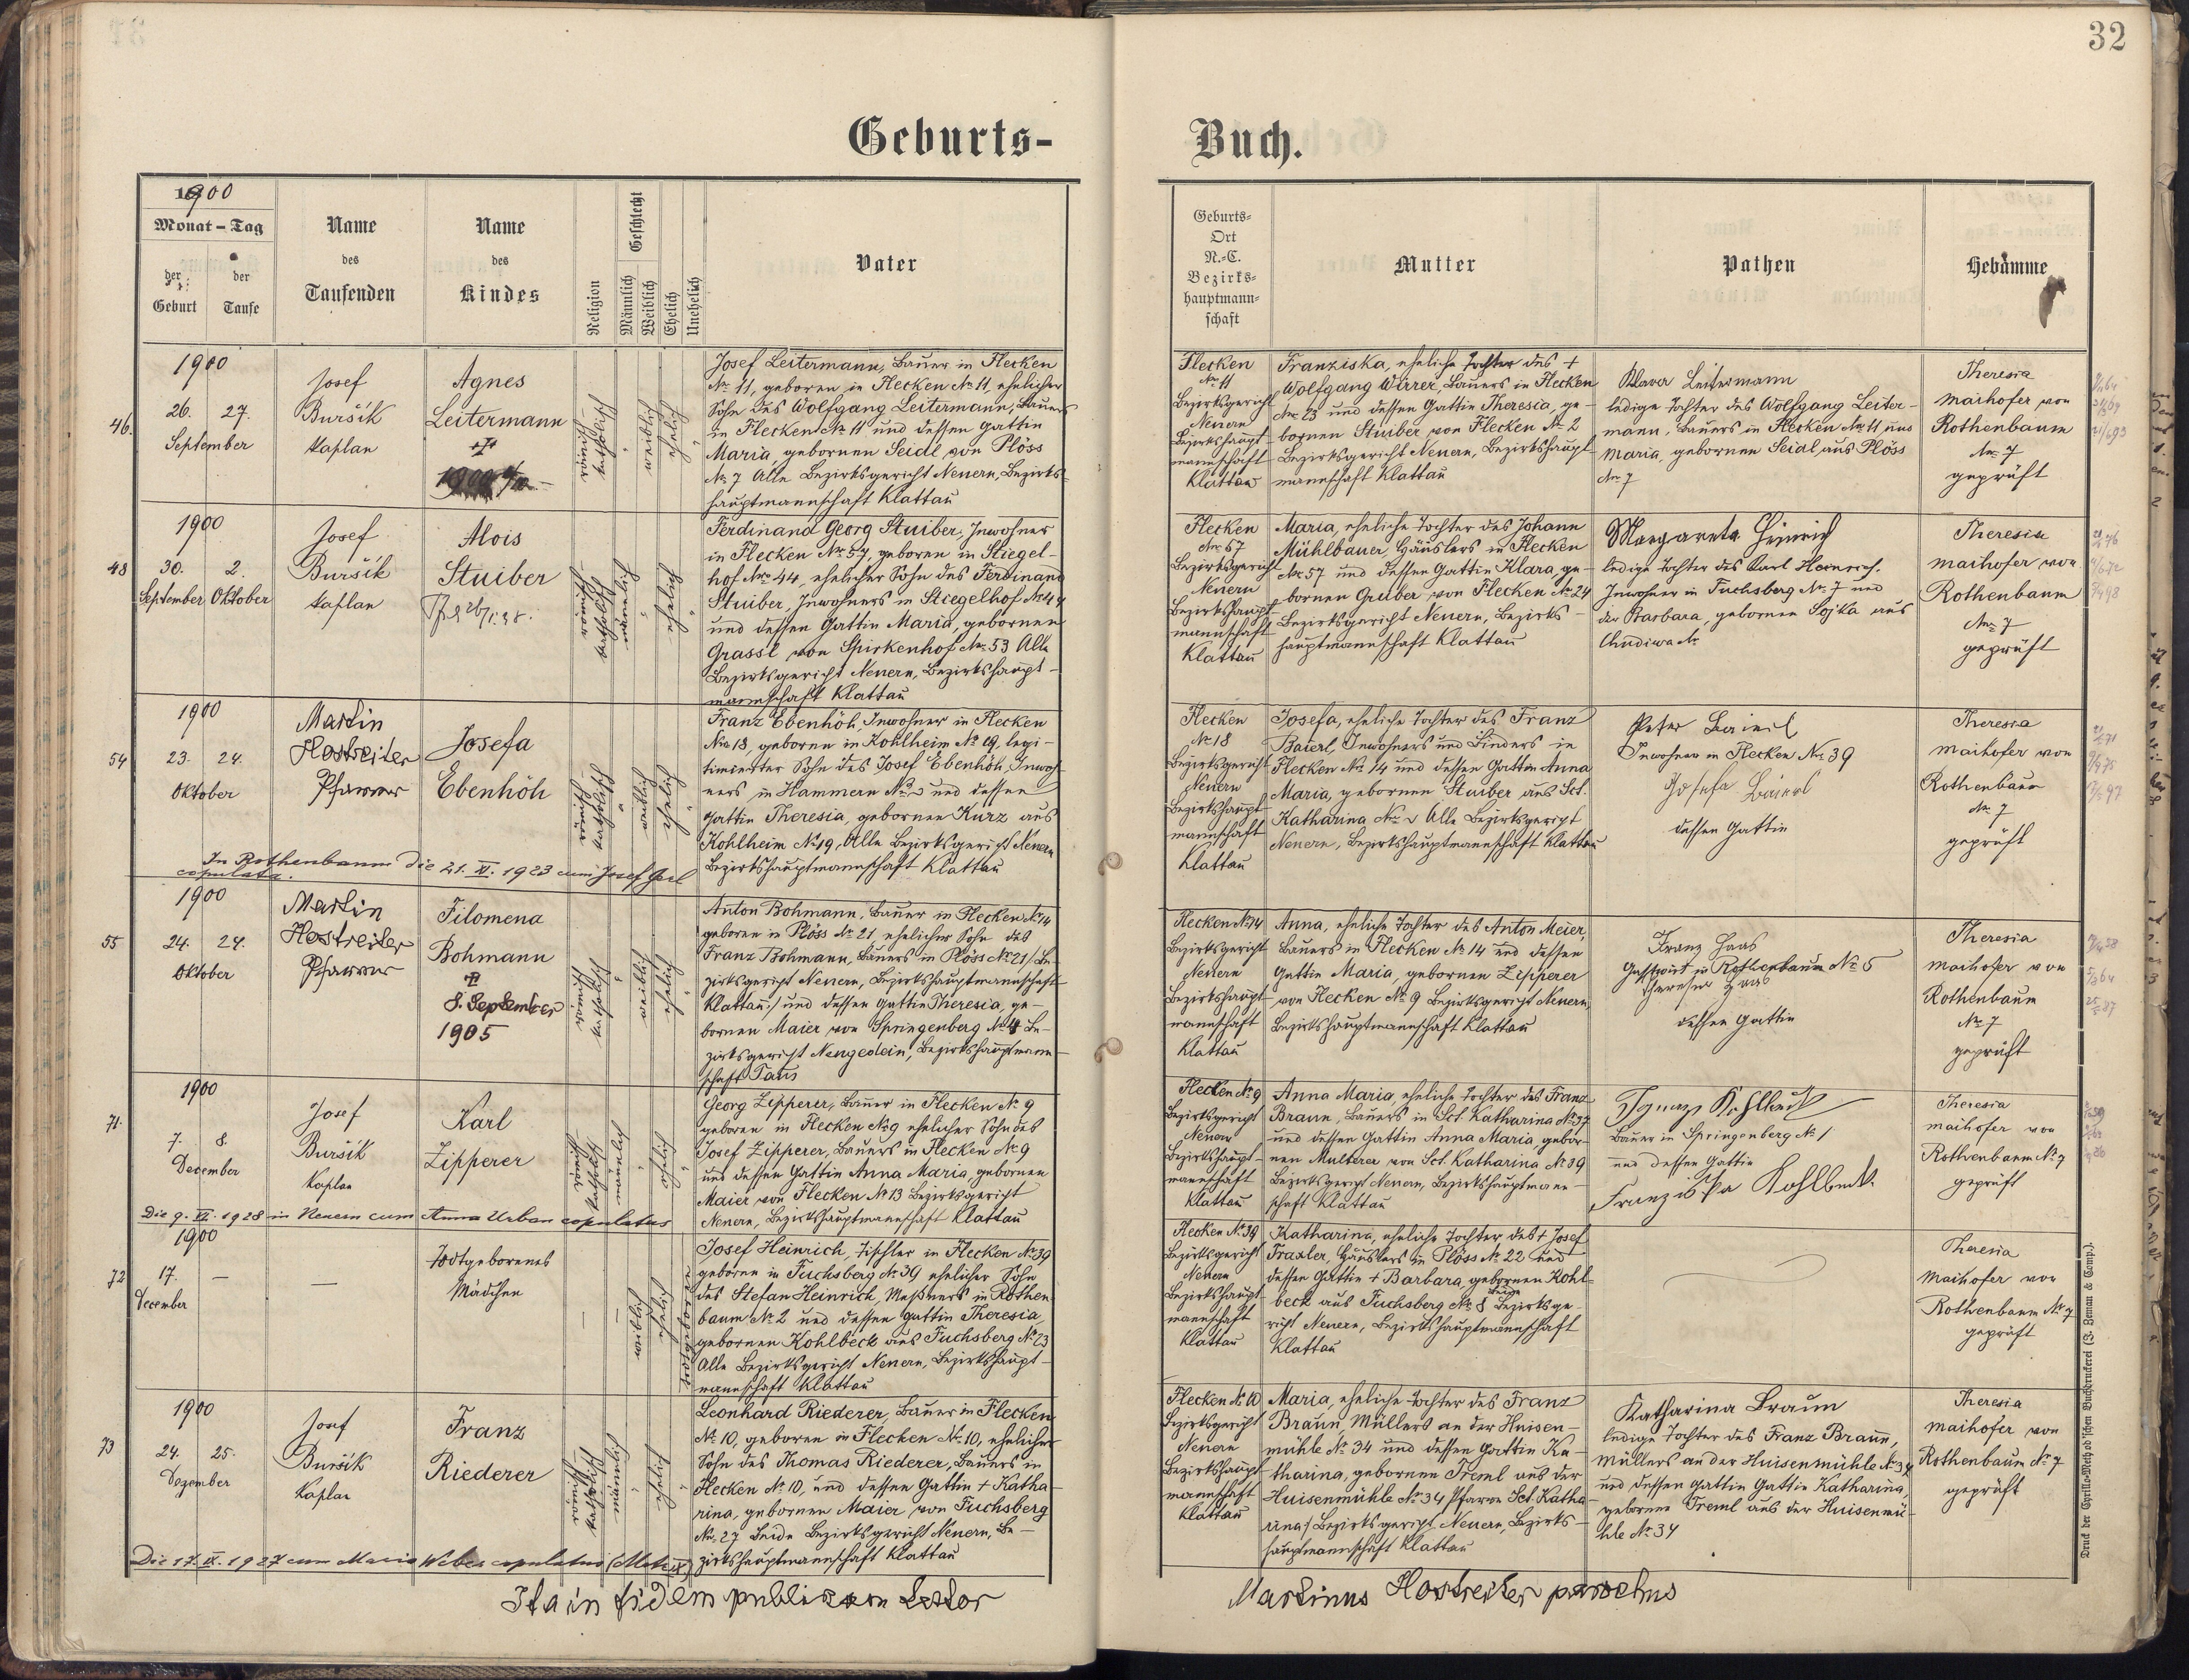 32
Geburts-
Buch.
1900
Monat – Tag
der Geburt
der Taufe
Name des Taufenden
Name des Kindes
Religion
Geschlecht
Männlich
Weiblich
Ehelich
Unehelich
Vater
Geburts-
Ort
N.-C.
Bezirks-
hauptmann-
schaft
Mutter
Pathen
Hebamme
46.
1900
26. 27.
September
Josef
Buršík
Kaplan
Agnes
Leitermann
römisch
katholisch
weiblich
ehelich
Josef Leitermann, Bauer in Flecken
No 11, geboren in Flecken No 11, ehelicher
Sohn des Wolfgang Leitermann, Bauers
in Flecken No 11 und dessen Gattin
Maria, gebornen Seidl von Plöss
No 7 Alle Bezirksgericht Neuern, Bezirks-
hauptmannschaft Klattau
Flecken
No 11
Bezirksgericht
Neuern
Bezirkshaupt-
mannschaft
Klattau
Franziska, eheliche Tochter des +
Wolfgang Wirrer, Bauers in Flecken
No 23 und dessen Gattin Theresia, ge-
bornen Stuiber von Flecken No 2
Bezirksgericht Neuern, Bezirkshaupt-
mannschaft Klattau
Klara Leitermann
ledige Tochter des Wolfgang Leiter-
mann, Bauers in Flecken No 11 und
Maria, gebornen Seidl aus Plöss
No 7
Theresia
Maihofer von
Rothenbaum
No 7
geprüft
48
1900
30. 2.
September Oktober
Josef
Buršík
Kaplan
Alois
Stuiber
römisch
katholisch
männlich
ehelich
Ferdinand Georg Stuiber, Inwohner
in Flecken No 57, geboren in Stiegel-
hof No 44, ehelicher Sohn des Ferdinand
Stuiber, Inwohners in Stiegelhof No 44
und dessen Gattin Maria, gebornen
Grassl von Spirkenhof No 53 Alle
Bezirksgericht Neuern, Bezirkshaupt-
mannschaft Klattau
Flecken
No 57
Bezirksgericht
Neuern
Bezirkshaupt-
mannschaft
Klattau
Maria, eheliche Tochter des Johann
Mühlbauer, Häuslers in Flecken
No 57 und dessen Gattin Klara, ge-
bornen Gruber von Flecken No 24
Bezirksgericht Neuern, Bezirks-
hauptmannschaft Klattau
Margareta Heinrich
ledige Tochter des Karl Heinrich,
Inwohner in Fuchsberg No 7 und
der Barbara, gebornen Sojka aus
Chudiwa No
Theresia
Maihofer von
Rothenbaum
No 7
geprüft
54
1900
23. 24.
Oktober
Martin
Hostreiter
Pfarrer
Josefa
Ebenhöh
römisch
katholisch
weiblich
ehelich
Franz Ebenhöh, Inwohner in Flecken
No 18, geboren in Kohlheim No 19, legi-
timierter Sohn des Josef Ebenhöh, Inwoh-
ners in Hammern No und dessen
Gattin Theresia, gebornen Kurz aus
Kohlheim No 19, Alle Bezirksgericht Neuern
Bezirkshauptmannschaft Klattau
In Rothenbaum die 21. XI. 1923 cum Josef
copulata.
Flecken
No 18
Bezirksgericht
Neuern
Bezirkshaupt-
mannschaft
Klattau
Josefa, eheliche Tochter des Franz
Baierl, Inwohners und Binders in
Flecken No 14 und dessen Gattin Anna
Maria, gebornen Stuiber aus Sct.
Katharina No Alle Bezirksgericht
Neuern, Bezirkshauptmannschaft Klattau
Peter Baierl
Inwohner in Flecken No 39
Josefa Baierl
dessen Gattin
Theresia
Maihofer von
Rothenbaum
No 7
geprüft
55
1900
24. 24.
Oktober
Martin
Hostreiter
Pfarrer
Filomena
Bohmann
8. September
1905
römisch
katholisch
weiblich
ehelich
Anton Bohmann, Bauer in Flecken No 14
geboren in Plöss No 21 ehelicher Sohn des
Franz Bohmann, Bauers in Plöss No 21 /: Be-
zirksgericht Neuern, Bezirkshauptmannschaft
Klattau :/ und dessen Gattin Theresia, ge-
bornen Maier von Springenberg No 4 Be-
zirksgericht Neugedein, Bezirkshauptmann-
schaft Taus
Flecken No 14
Bezirksgericht
Neuern
Bezirkshaupt-
mannschaft
Klattau
Anna, eheliche Tochter des Anton Meier,
Bauers in Flecken No 14 und dessen
Gattin Maria, gebornen Zipperer
von Flecken No 9 Bezirksgericht Neuern,
Bezirkshauptmannschaft Klattau
Franz Haas
Gastwirt in Rothenbaum No 5
Theresia Haas
dessen Gattin
Theresia
Maihofer von
Rothenbaum
No 7
geprüft
71.
1900
7. 8.
December
Josef
Buršík
Kaplan
Karl
Zipperer
römisch
katholisch
männlich
ehelich
Georg Zipperer, Bauer in Flecken No 9
geboren in Flecken No 9 ehelicher Sohn des
Josef Zipperer, Bauers in Flecken No 9
und dessen Gattin Anna Maria, gebornen
Maier von Flecken No 13 Bezirksgericht
Neuern, Bezirkshauptmannschaft Klattau
Die 9. VI. 1928 in Neuern cum Anna Urban copulatus
Flecken No 9
Bezirksgericht
Neuern
Bezirkshaupt-
mannschaft
Klattau
Anna Maria, eheliche Tochter des Franz
Braun, Bauers in Sct. Katharina No 37
und dessen Gattin Anna Maria, gebor-
nen Multerer von Sct. Katharina No 39
Bezirksgericht Neuern, Bezirkshauptmann-
schaft Klattau
Ignaz Kohlbeck
Bauer in Springenberg No 1
und dessen Gattin
Franziska Kohlbeck
Theresia
Maihofer von
Rothenbaum No 7
geprüft
72
1900
17. —
December
—
Todtgeborenes
Mädchen
weiblich
ehelich
todtgeboren
Josef Heinrich, Tischler in Flecken No 39
geboren in Fuchsberg No 39 ehelicher Sohn
des Stefan Heinrich, Meßners in Rothen-
baum No 2 und dessen Gattin Theresia,
gebornen Kohlbeck aus Fuchsberg No 23
Alle Bezirksgericht Neuern, Bezirkshaupt-
mannschaft Klattau
Flecken No 39
Bezirksgericht
Neuern
Bezirkshaupt-
mannschaft
Klattau
Katharina, eheliche Tochter des + Josef
Traxler, Häuslers in Plöss No 22 und
dessen Gattin + Barbara, gebornen Kohl-
beck aus Fuchsberg No 8 Beide Bezirksge-
richt Neuern, Bezirkshauptmannschaft
Klattau
Theresia
Maihofer von
Rothenbaum No 7
geprüft
73
1900
24. 25.
Dezember
Josef
Buršík
Kaplan
Franz
Riederer
römisch
katholisch
männlich
ehelich
Leonhard Riederer, Bauer in Flecken
No 10, geboren in Flecken No 10, ehelicher
Sohn des Thomas Riederer, Bauers in
Flecken No 10, und dessen Gattin + Katha-
rina, gebornen Maier von Fuchsberg
No 27 Beide Bezirksgericht Neuern, Be-
zirkshauptmannschaft Klattau
Die 17. IX. 1927 cum Maria Weber copulatus
Flecken No 10
Bezirksgericht
Neuern
Bezirkshaupt-
mannschaft
Klattau
Maria, eheliche Tochter des Franz
Braun, Müllers an der Huisen-
mühle No 34 und dessen Gattin Ka-
tharina, gebornen Treml aus der
Huisenmühle No 34 Pfarre Sct. Katha-
rina / Bezirksgericht Neuern, Bezirks-
hauptmannschaft Klattau
Katharina Braun
ledige Tochter des Franz Braun,
Müllers an der Huisenmühle No 34
und dessen Gattin Gattin Katharina,
geborene Treml aus der Huisenmü-
hle No 34
Theresia
Maihofer von
Rothenbaum No 7
geprüft
Ita in fidem publicam testor
Martinus Hostreiter parochus
Druck der Cyrillo-Method'schen Buchdruckerei (J. Zeman & Comp.).